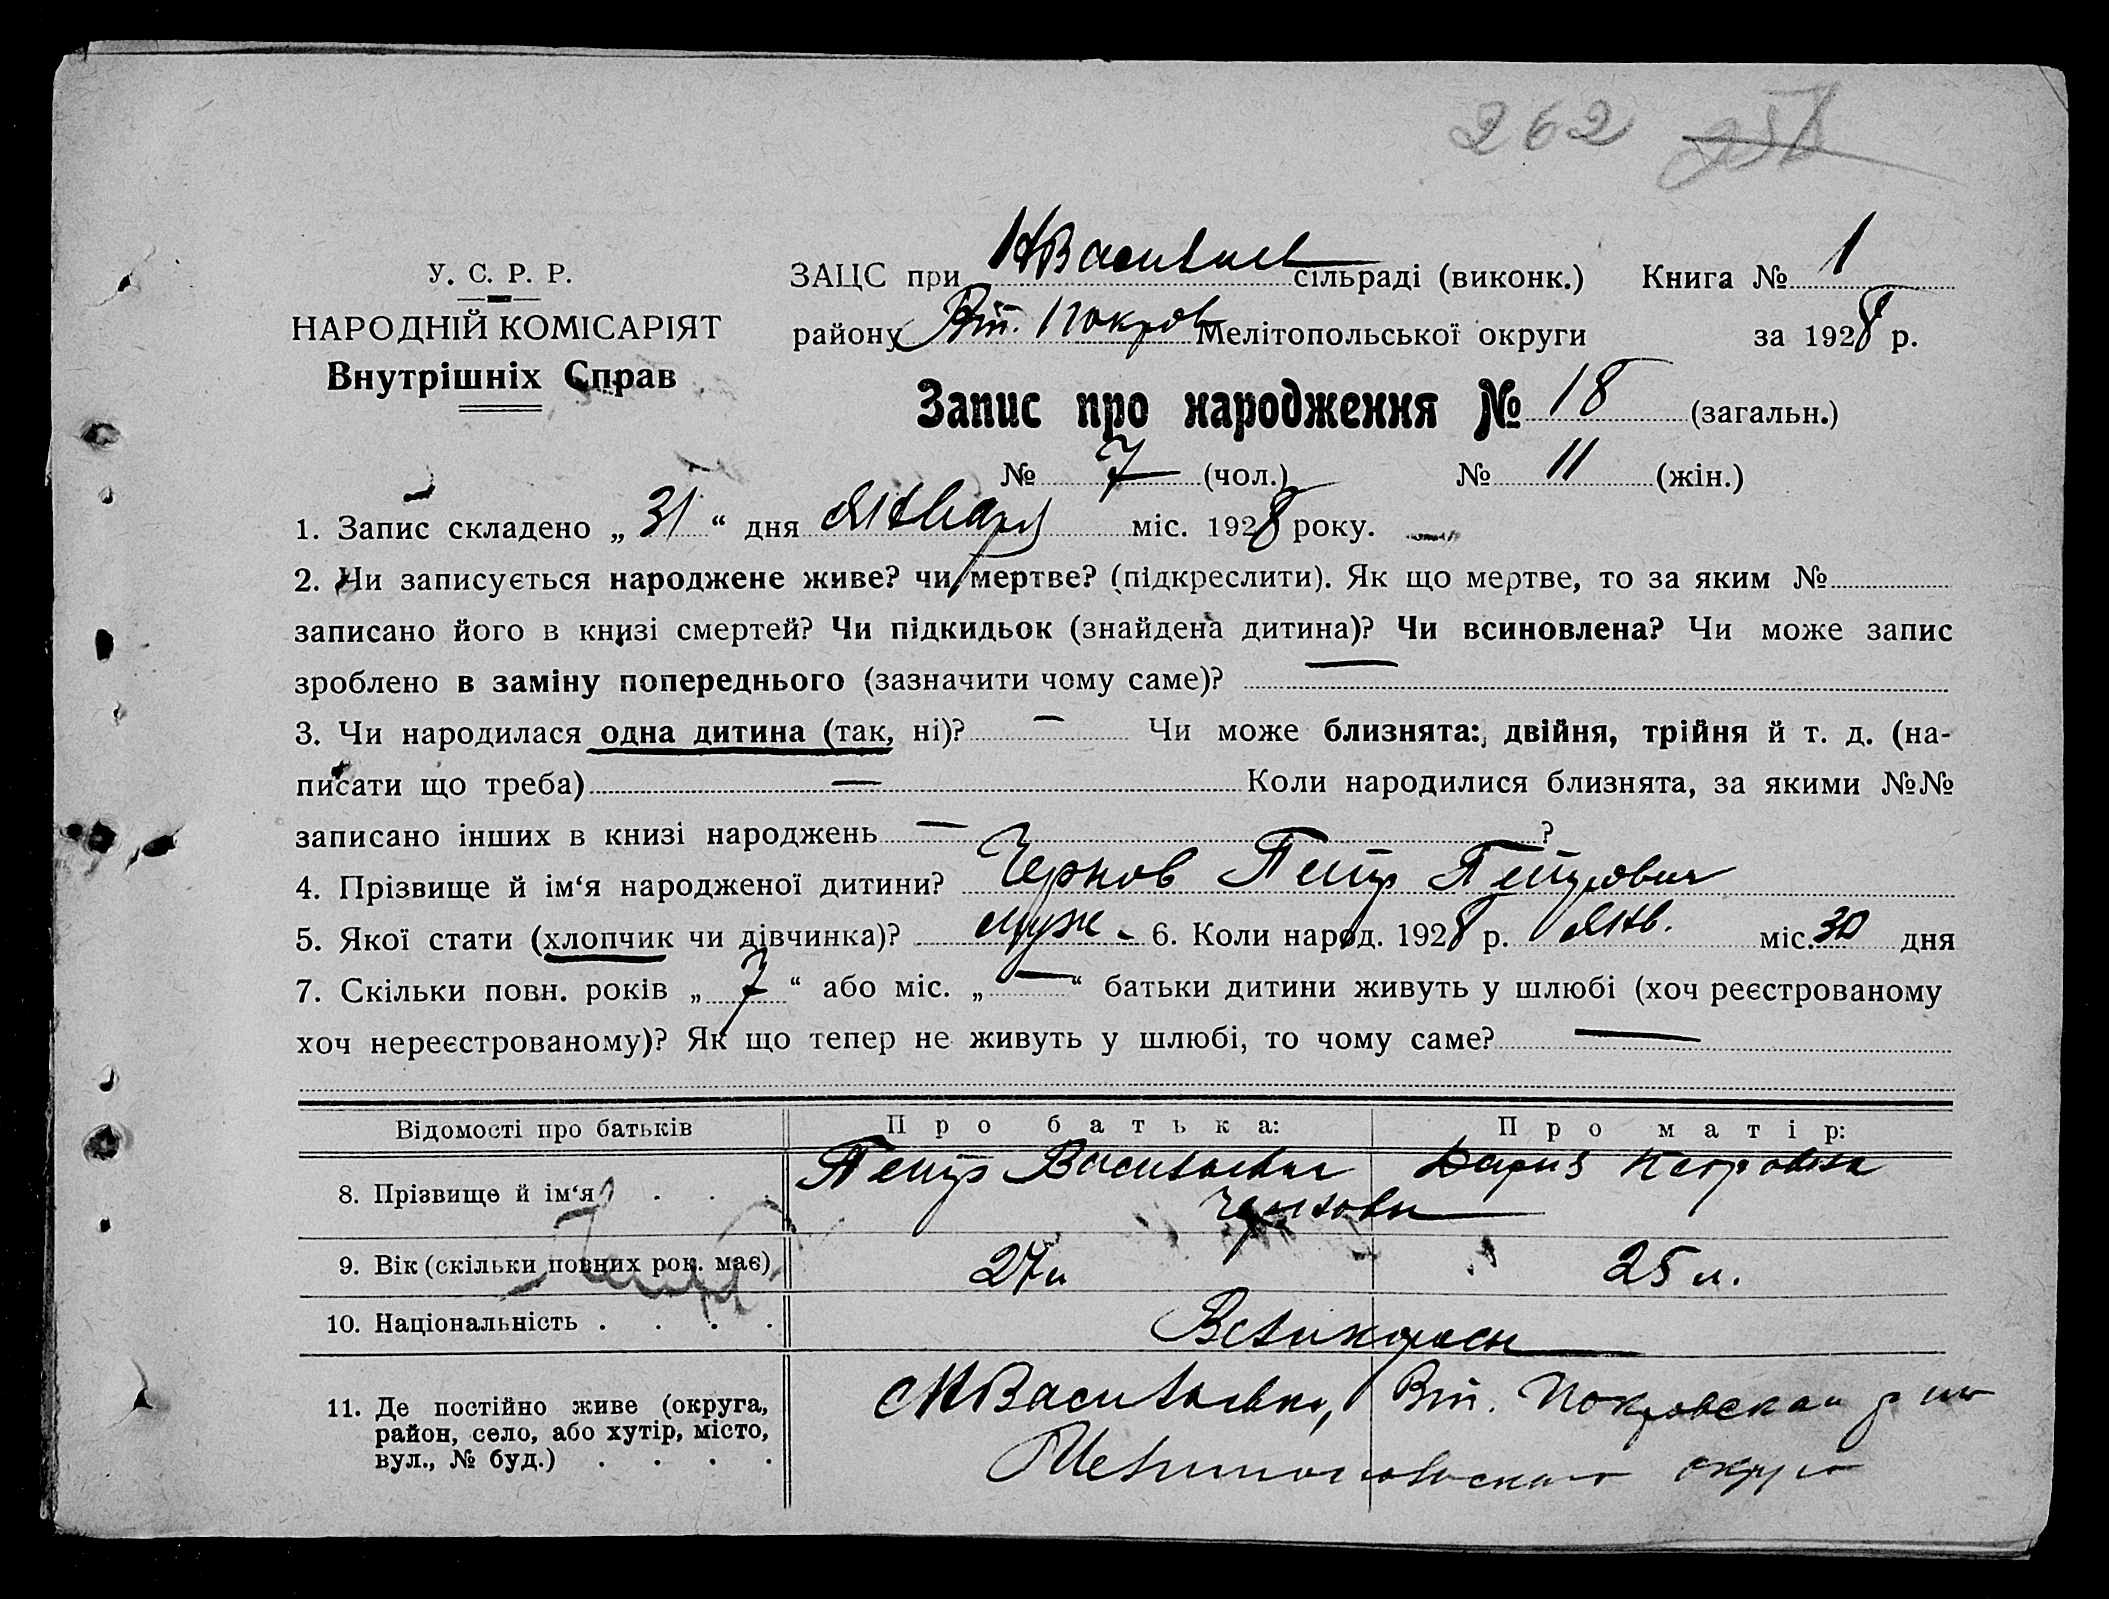 262 251
У. С. Р. Р.
НАРОДНІЙ КОМІСАРІЯТ
Внутрішніх Справ
ЗАЦС при НВасильев сільраді (виконк.) Книга № 1
району Вт. Покров Мелітопольської округи за 1928 р.
Запис про народження № 18 (загальн.)
№ 7 (чол.) № 11 (жін.)
1. Запис складено „ 31 “ дня Января міс. 1928 року.
2. Чи записується народжене живе? чи мертве? (підкреслити). Як що мертве, то за яким №
записано його в книзі смертей? Чи підкидьок (знайдена дитина)? Чи всиновлена? Чи може запис
зроблено в заміну попереднього (зазначити чому саме)? —
3. Чи народилася одна дитина (так, ні)? — Чи може близнята: двійня, трійня й т. д. (на-
писати що треба) — Коли народилися близнята, за якими №№
записано інших в книзі народжень — ?
4. Прізвище й ім‘я народженої дитини? Чернов Петр Петрович
5. Якої стати (хлопчик чи дівчинка)? муж - 6. Коли народ. 1928 р. Янв. міс. 30 дня
7. Скільки повн. років „ 7 “ або міс. „ — “ батьки дитини живуть у шлюбі (хоч реєстрованому
хоч нереєстрованому)? Як що тепер не живуть у шлюбі, то чому саме? —
Відомості про батьків Про батька: Про матір:
8. Прізвище й ім‘я . . . Петр Васильевич Дария Петровна
Черновы
9. Вік (скільки повних рок. має) 27 л 25 л.
10. Національність . . . . Великоросы
11. Де постійно живе (округа, район, село, або хутір, місто, вул., № буд.) . . . . НВасильевка, Вт. Покровского р на
Мелитопольского округа